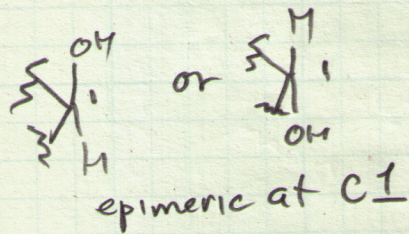 OH
H
1
or
H
1
OH
H
epimeric at C1